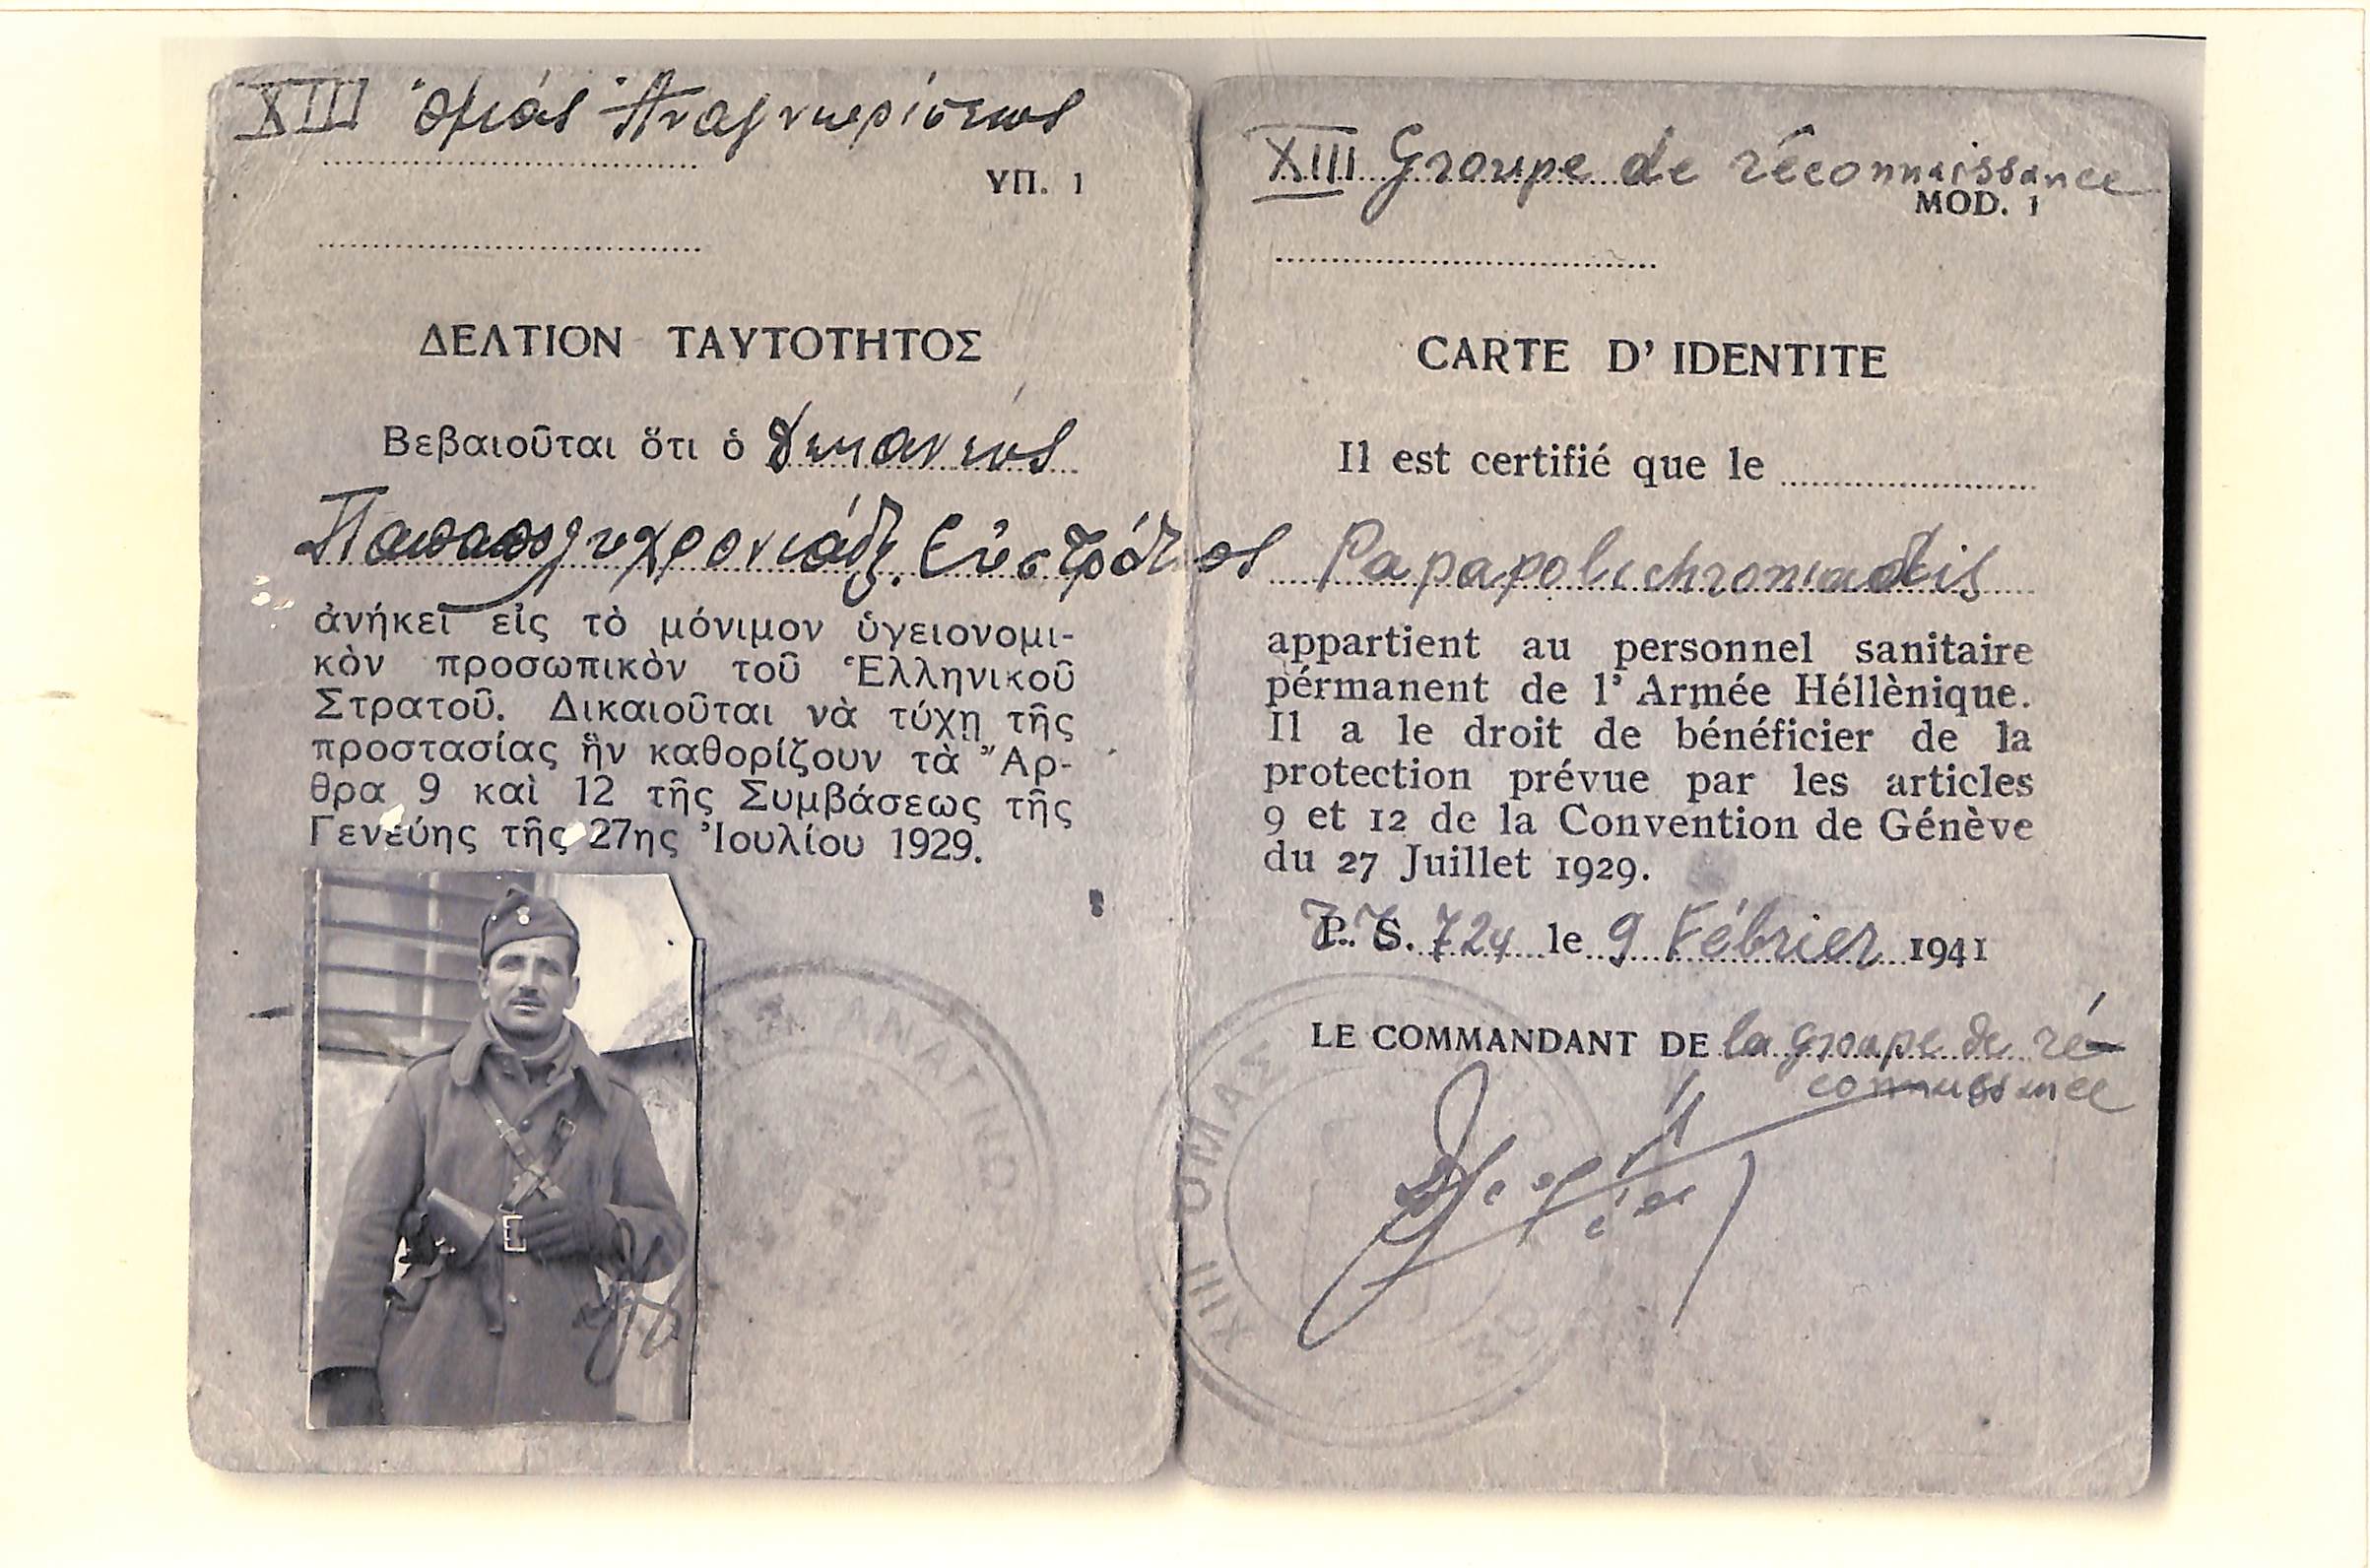 XIII Ὁμὰς Ἀναγνωρίσεως
ΥΠ. 1
ΔΕΛΤΙΟΝ ΤΑΥΤΟΤΗΤΟΣ
Βεβαιοῦται ὅτι ὁ δεκανεύς
Παπαπολυχρονιάδης Εὐστράτιος
ἀνήκει εἰς τὸ μόνιμον ὑγειονομι-
κὸν προσωπικὸν τοῦ Ἑλληνικοῦ
Στρατοῦ. Δικαιοῦται νὰ τύχῃ τῆς
προστασίας ἣν καθορίζουν τὰ Ἄρ-
θρα 9 καὶ 12 τῆς Συμβάσεως τῆς
Γενεύης τῆς 27ης Ἰουλίου 1929.
XIII Groupe de réconnaissance
MOD. 1
CARTE D' IDENTITE
Il est certifié que le
Papapolichroniadis
appartient au personnel sanitaire
pérmanent de l' Armée Héllènique.
Il a le droit de bénéficier de la
protection prévue par les articles
9 et 12 de la Convention de Génève
du 27 Juillet 1929.
P. S. 724 le 9 Fébrier 1941
LE COMMANDANT DE la groupe de ré-
connaissance
XIII ΟΜΑΣ